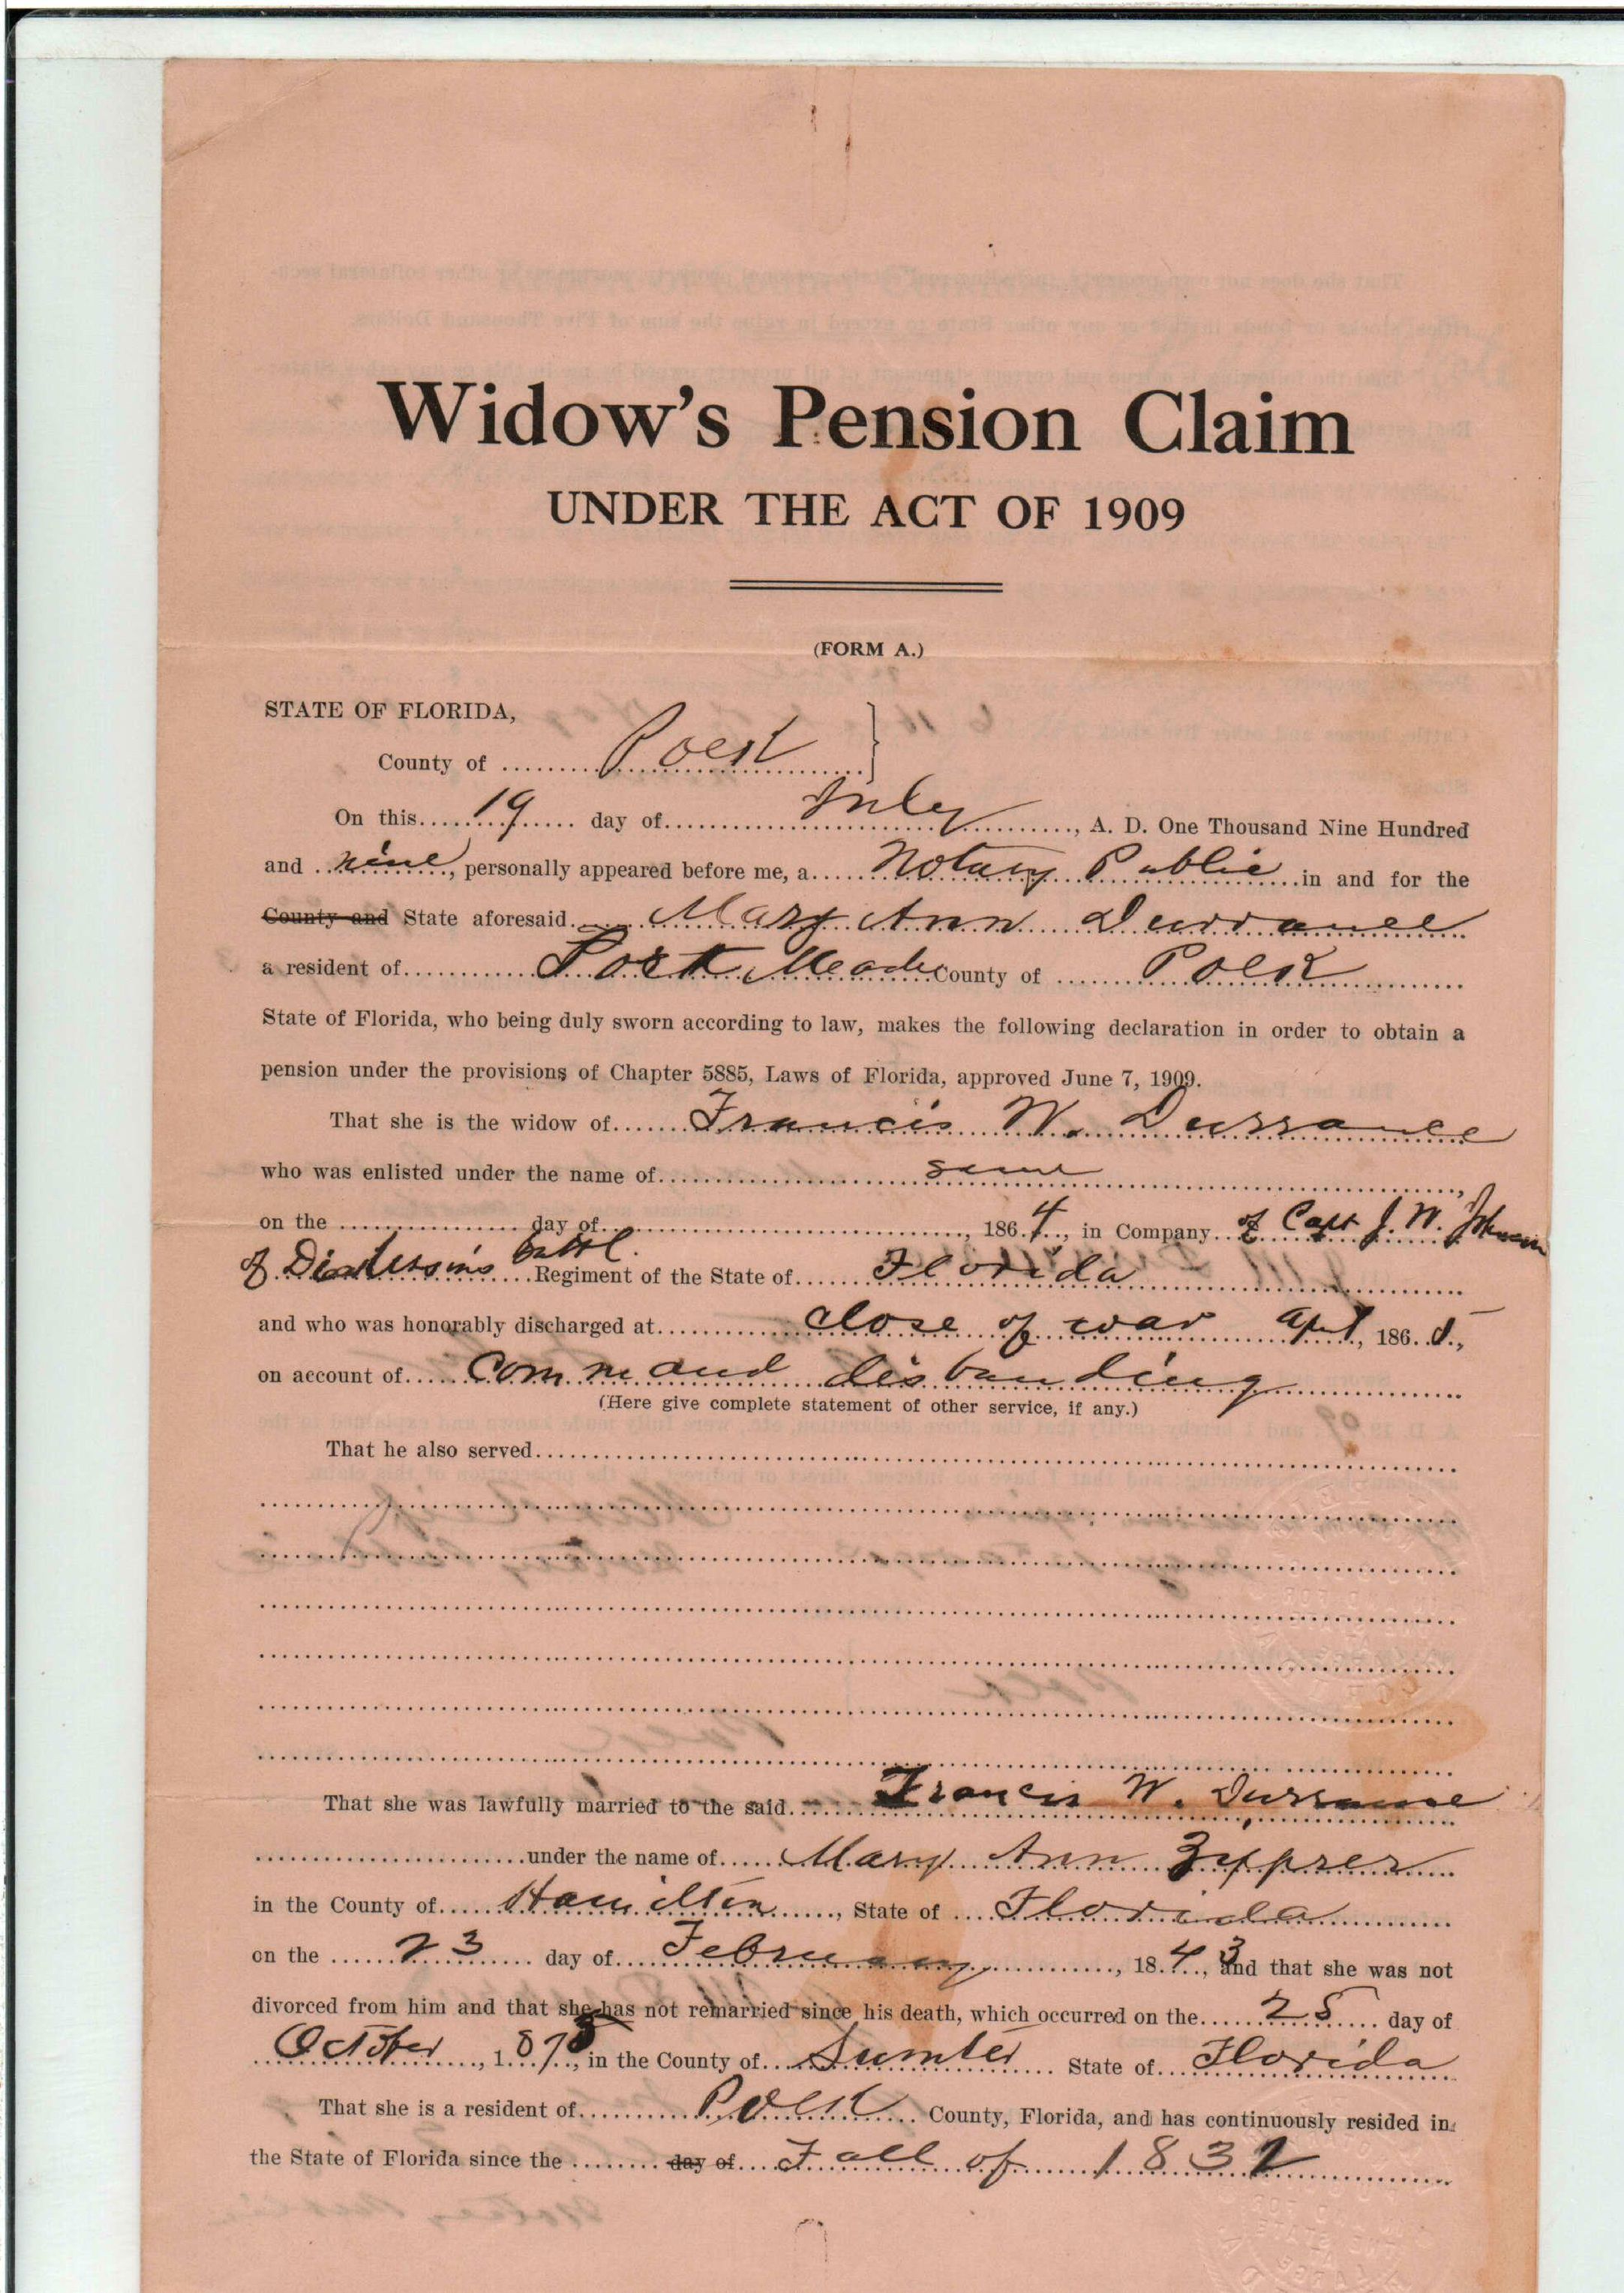 Widow's Pension Claim
UNDER THE ACT OF 1909
(FORM A.)
STATE OF FLORIDA,
County of Polk
On this 19 day of July, A. D. One Thousand Nine Hundred
and nine, personally appeared before me, a Notary Public in and for the
County and State aforesaid Mary Ann Durrance
a resident of Fort Meade County of Polk
State of Florida, who being duly sworn according to law, makes the following declaration in order to obtain a
pension under the provisions of Chapter 5885, Laws of Florida, approved June 7, 1909.
That she is the widow of Francis W. Durrance
who was enlisted under the name of same,
on the day of, 1864, in Company of Capt J. W.
of Regiment of the State of Florida
and who was honorably discharged at close of war Apl, 1865,
on account of command disbanding
(Here give complete statement of other service, if any.)
That he also served
That she was lawfully married to the said Francis W. Durrance
under the name of Mary Ann Zipprer
in the County of Hamilton, State of Florida
on the 23 day of February, 1843, and that she was not
divorced from him and that she has not remarried since his death, which occurred on the 25 day of
October, 187, in the County of Sumter State of Florida
That she is a resident of Polk County, Florida, and has continuously resided in
the State of Florida since the day of Fall of 1832